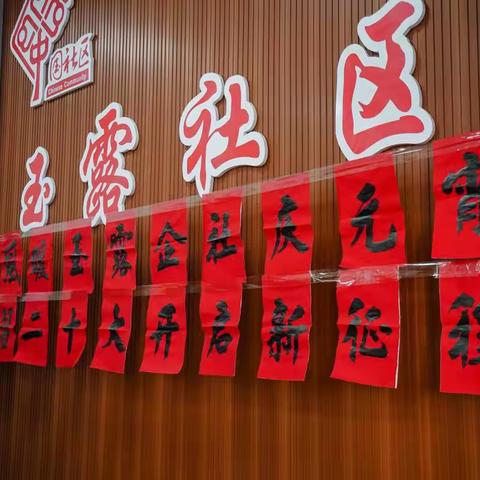 国社区
Chinese Community
玉露社区
暖玉露企社庆元宵
二十大开启新征程